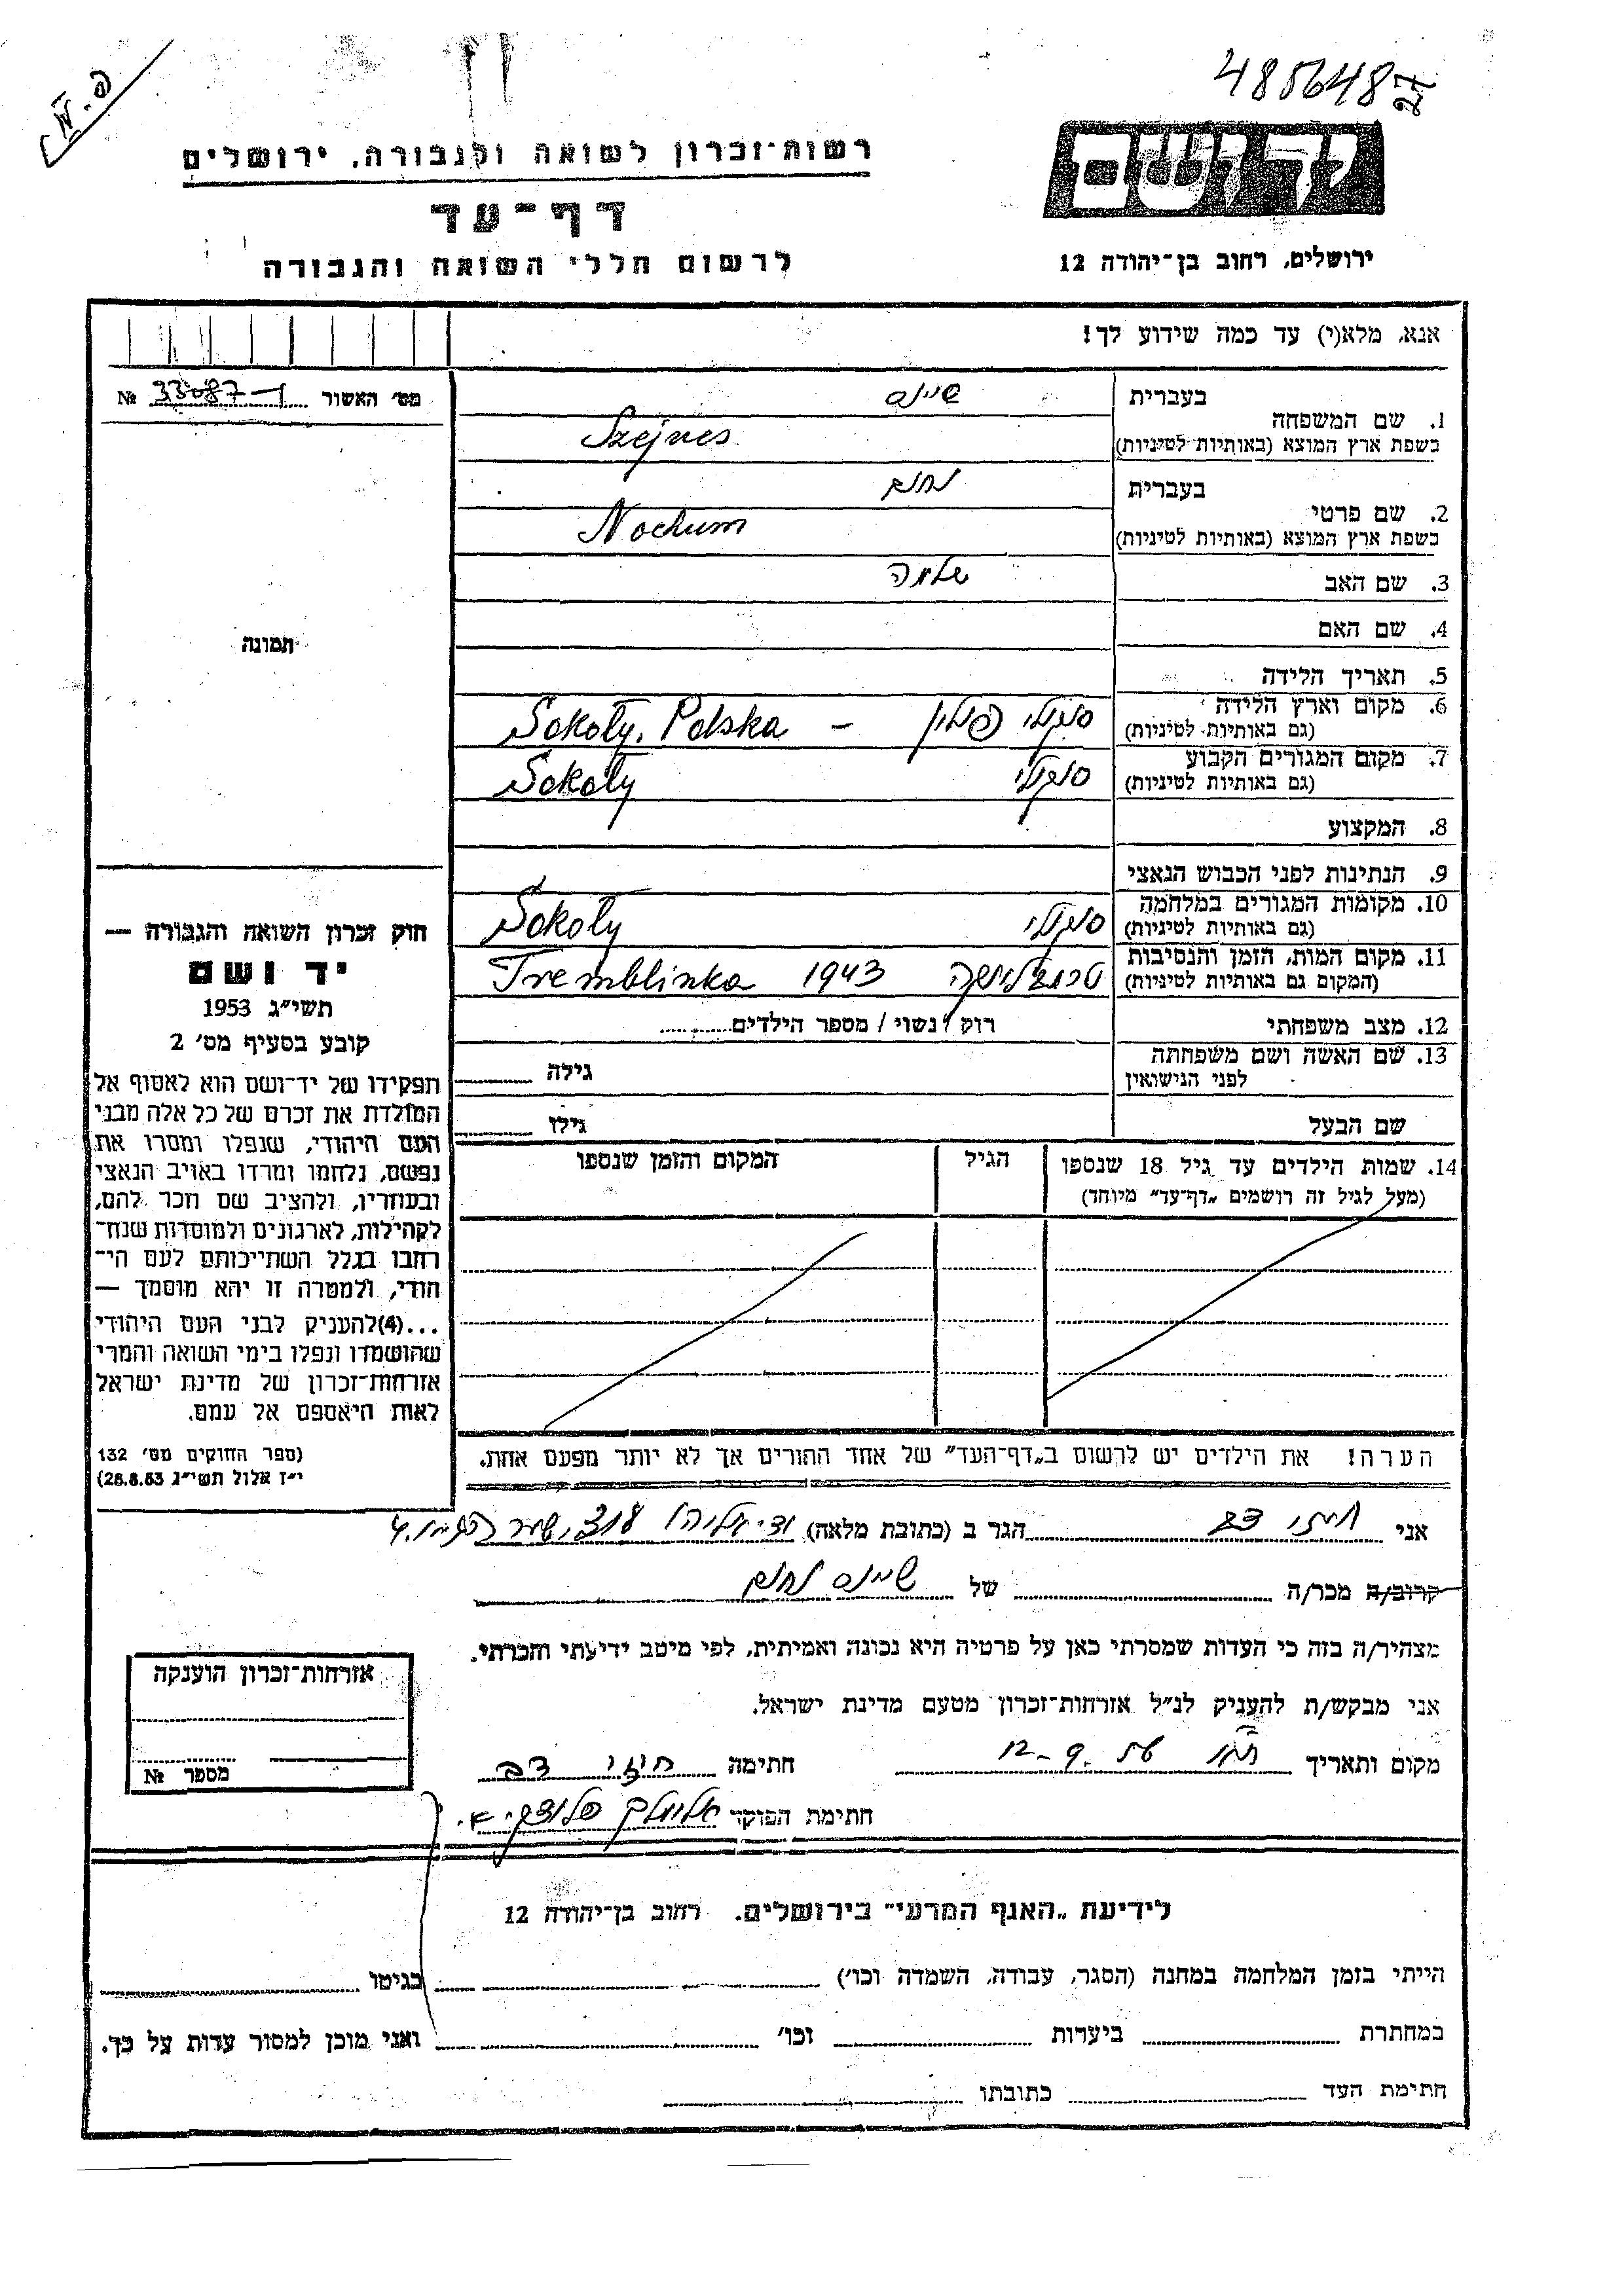 485648
27
פ. ש
רשות־זכרון לשואה ולגבורה, ירושלים
יד ושם
דף־עד
לרשום חללי השואה והגבורה
ירושלים, רחוב בן־יהודה 12
אנא, מלא(י) עד כמה שידוע לך!
מס׳ האשור № 33087-1
1. שם המשפחה
בעברית שיינס
בשפת ארץ המוצא (באותיות לטיניות) Szejnes
2. שם פרטי
בעברית נחום
בשפת ארץ המוצא (באותיות לטיניות) Nochum
3. שם האב שלמה
4. שם האם
תמונה
5. תאריך הלידה
6. מקום וארץ הלידה סוקולי פולין – Sokoły, Polska
(גם באותיות לטיניות)
7. מקום המגורים הקבוע סוקולי Sokoły
(גם באותיות לטיניות)
8. המקצוע
9. הנתינות לפני הכבוש הנאצי
10. מקומות המגורים במלחמה סוקולי Sokoły
(גם באותיות לטיניות)
11. מקום המות, הזמן והנסיבות טרמבלינקה 1943 Tremblinka
(המקום גם באותיות לטיניות)
12. מצב משפחתי רוק / נשוי / מספר הילדים
13. שם האשה ושם משפחתה גילה
לפני הנישואין
שם הבעל גילו
14. שמות הילדים עד גיל 18 שנספו הגיל המקום והזמן שנספו
(מעל לגיל זה רושמים „דף־עד״ מיוחד)
הערה! את הילדים יש לרשום ב„דף־העד״ של אחד ההורים אך לא יותר מפעם אחת.
חוק זכרון השואה והגבורה —
יד ושם
תשי״ג 1953
קובע בסעיף מס׳ 2
תפקידו של יד־ושם הוא לאסוף אל
המולדת את זכרם של כל אלה מבני
העם היהודי, שנפלו ומסרו את
נפשם, נלחמו ומרדו באויב הנאצי
ובעוזריו, ולהציב שם וזכר להם,
לקהילות, לארגונים ולמוסדות שנח־
רבו בגלל השתייכותם לעם הי־
הודי, ולמטרה זו יהא מוסמך —
...(4)להעניק לבני העם היהודי
שהושמדו ונפלו בימי השואה והמרי
אזרחות־זכרון של מדינת ישראל
לאות היאספם אל עמם.
(ספר החוקים מס׳ 132
י״ז אלול תשי״ג 28.8.53)
אני חוזי דב הגר ב (כתובת מלאה)
קרוב/ה מכר/ה של שיינס נחום
מצהיר/ה בזה כי העדות שמסרתי כאן על פרטיה היא נכונה ואמיתית, לפי מיטב ידיעתי והכרתי.
אני מבקש/ת להעניק לנ״ל אזרחות־זכרון מטעם מדינת ישראל.
מקום ותאריך 12-9. חתימה חוזי דב
חתימת הפוקד
אזרחות־זכרון הוענקה
מספר №
לידיעת „האגף המדעי״ בירושלים. רחוב בן־יהודה 12
הייתי בזמן המלחמה במחנה (הסגר, עבודה, השמדה וכו׳) בגיטו
במחתרת ביערות וכו׳ ואני מוכן למסור עדות על כך.
חתימת העד כתובתו